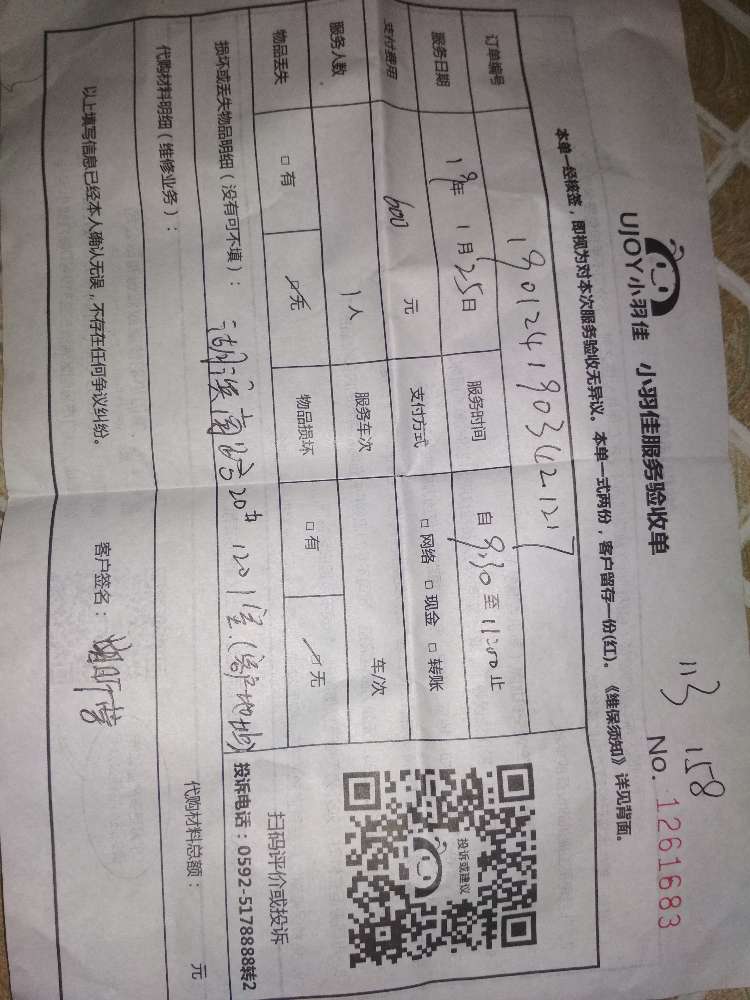 113 158
UJOY小羽佳 小羽佳服务验收单 No. 1261683
本单一经核签，即视为对本次服务验收无异议。本单一式两份，客户留存一份(红)。《维保须知》详见背面。
订单编号 190124190342127
服务日期 19年 1月25日 服务时间 自 9:30 至 11:00 止
支付费用 600 元 支付方式 □网络 □现金 □转账
服务人数 1人 服务车次 车/次
物品丢失 □有 □无 物品损坏 □有 □无
损坏或丢失物品明细（没有可不填）： 湖滨南路20号 1201室(客户地址)
代购材料明细（维修业务）： 代购材料总额： 元
以上填写信息已经本人确认无误，不存在任何争议纠纷。 客户签名：
投诉或建议
扫码评价或投诉
投诉电话：0592-5178888转2